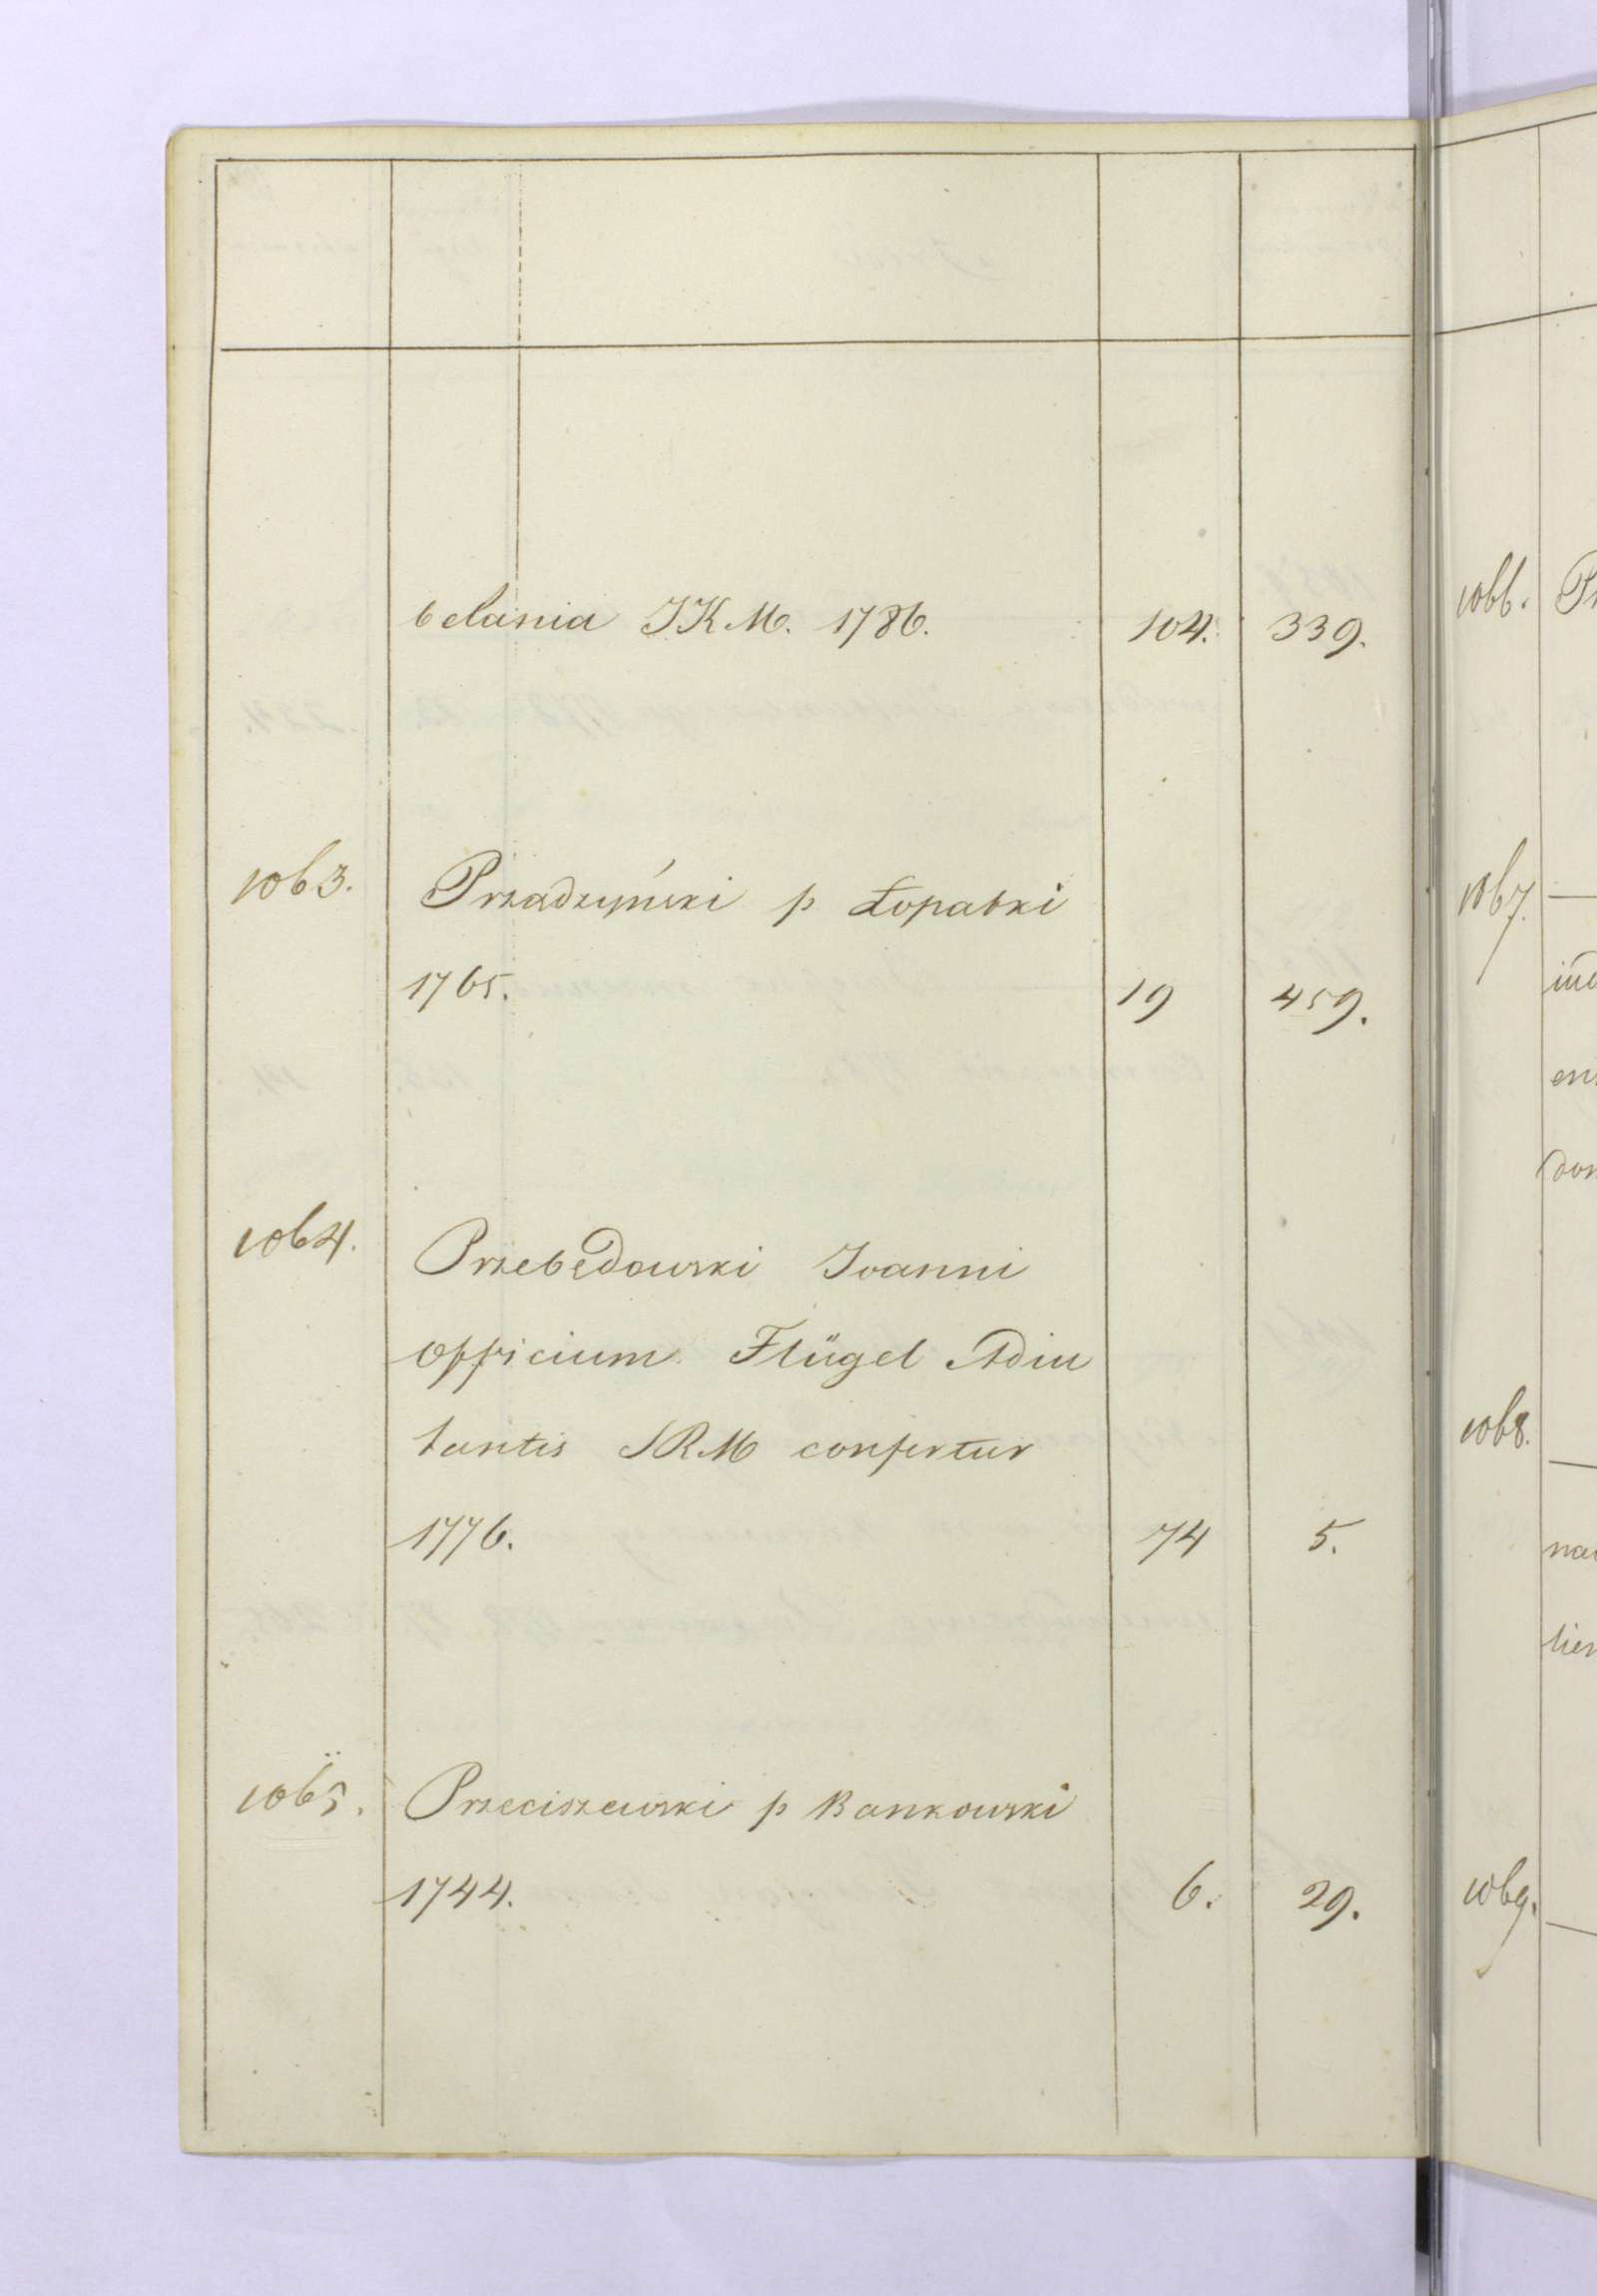 belania JKM. 1786. 104. 339.
1063. Przadzyński p Łopatki
1765. 19 459.
1064. Przebędowski Joanni
officium Flügel Adiu
tantis SRM confertur
1776. 74 5.
1065. Przeciszewski p Bankowski
1744. 6. 29.
1066.
1067.
1068.
1069.